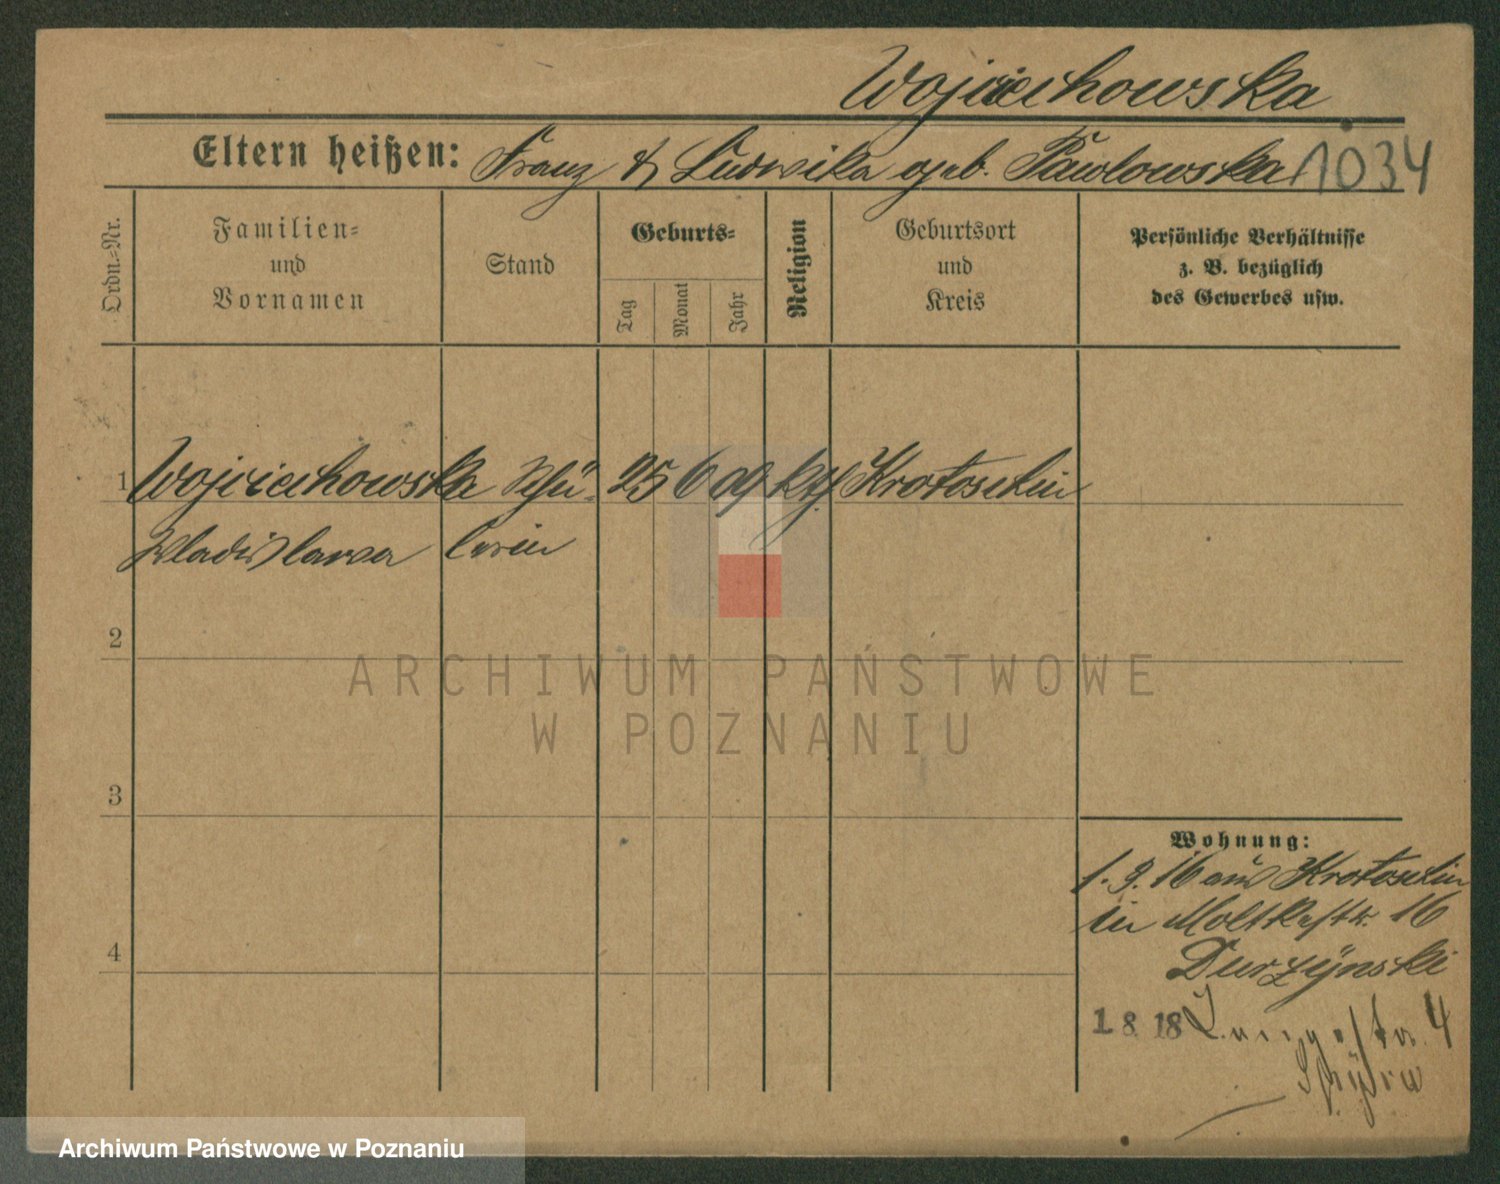 Wojciechowska
Eltern heißen: Franz & Ludwika geb. Pawlowska 1034
Ordn.-Nr.
Familien-
und
Vornamen
Stand
Geburts-
Tag
Monat
Jahr
Religion
Geburtsort
und
Kreis
Persönliche Verhältnisse
z. B. bezüglich
des Gewerbes usw.
1 Wojciechowska Schü- 25 6 01 kth Krotoschin
Wladislawa lerin
2
3
4
Wohnung:
1.9.16 aus Krotoschin
in Moltkestr. 16
Durzynski
1.8.18 Langestr. 4
ARCHIWUM PAŃSTWOWE
W POZNANIU
Archiwum Państwowe w Poznaniu